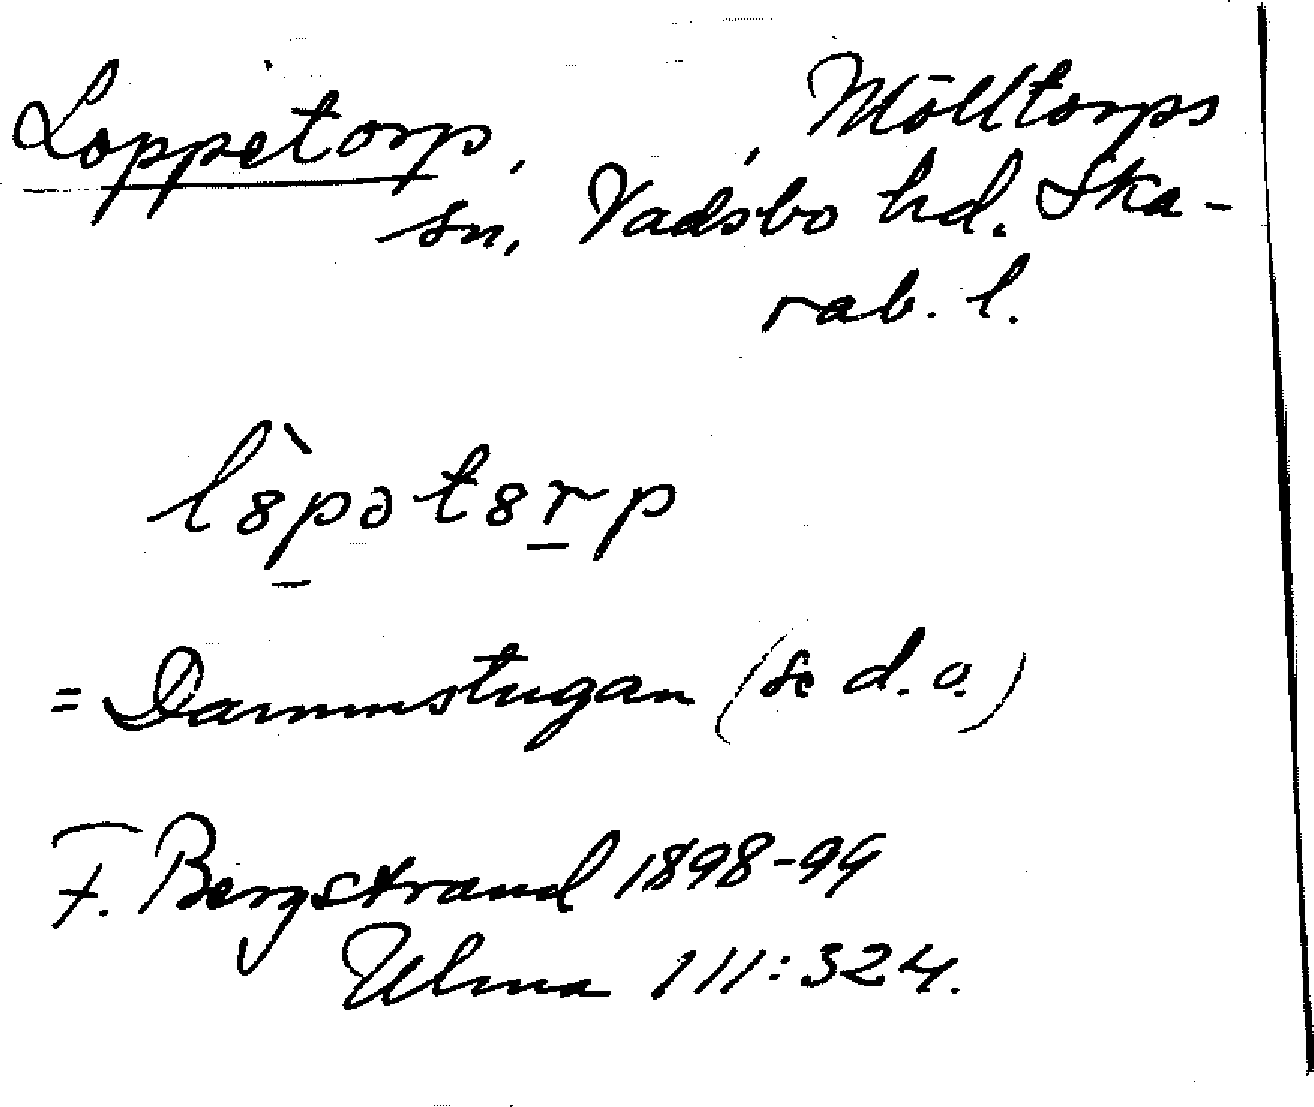 Loppetorp, , Mölltorps
sn, Vadsbo hd. Ska-
rab. l.
l8̀p̱ət8ṟp
= Dammstugan (se d.o.)
F. Bergstrand 1898-99
Ulma 111:324.